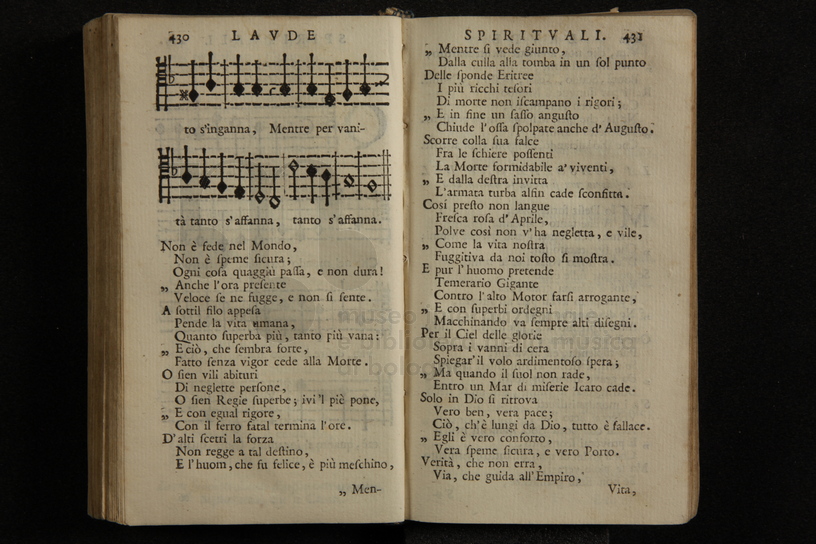 430 LAVDE
to s'inganna, Mentre per vani-
tà tanto s'affanna, tanto s'affanna.
Non è fede nel Mondo,
Non è ſpeme ſicura;
Ogni coſa quaggiù paſſa, e non dura!
„ Anche l'ora preſente
Veloce ſe ne fugge, e non ſi ſente.
A ſottil filo appeſa
Pende la vita umana,
Quanto ſuperba più, tanto più vana:
„ E ciò, che ſembra forte,
Fatto ſenza vigor cede alla Morte.
O ſien vili abituri
Di neglette perſone,
O ſien Regie ſuperbe; ivi 'l piè pone,
„ E con egual rigore,
Con il ferro fatal termina l'ore.
D'alti ſcetri la forza
Non regge a tal deſtino,
E l'huom, che fu felice, è più meſchino,
„ Men-
SPIRITVALI. 431
„ Mentre ſi vede giunto,
Dalla culla alla tomba in un ſol punto
Delle ſponde Eritree
I più ricchi teſori
Di morte non iſcampano i rigori;
„ E in fine un ſaſſo anguſto
Chiude l'oſſa ſpolpate anche d'Auguſto.
Scorre colla ſua falce
Fra le ſchiere poſſenti
La Morte formidabile a' viventi,
„ E dalla deſtra invitta
L'armata turba alfin cade ſconfitta.
Così preſto non langue
Freſca roſa d'Aprile,
Polve così non v'ha negletta, e vile,
„ Come la vita noſtra
Fuggitiva da noi toſto ſi moſtra.
E pur l'huomo pretende
Temerario Gigante
Contro l'alto Motor farſi arrogante,
„ E con ſuperbi ordegni
Macchinando va ſempre alti diſegni.
Per il Ciel delle glorie
Sopra i vanni di cera
Spiegar'il volo ardimentoſo ſpera;
„ Ma quando il ſuol non rade,
Entro un Mar di miſerie Icaro cade.
Solo in Dio ſi ritrova
Vero ben, vera pace;
Ciò, ch'è lungi da Dio, tutto è fallace.
„ Egli è vero conforto,
Vera ſpeme ſicura, e vero Porto.
Verità, che non erra,
Via, che guida all'Empiro,
Vita,